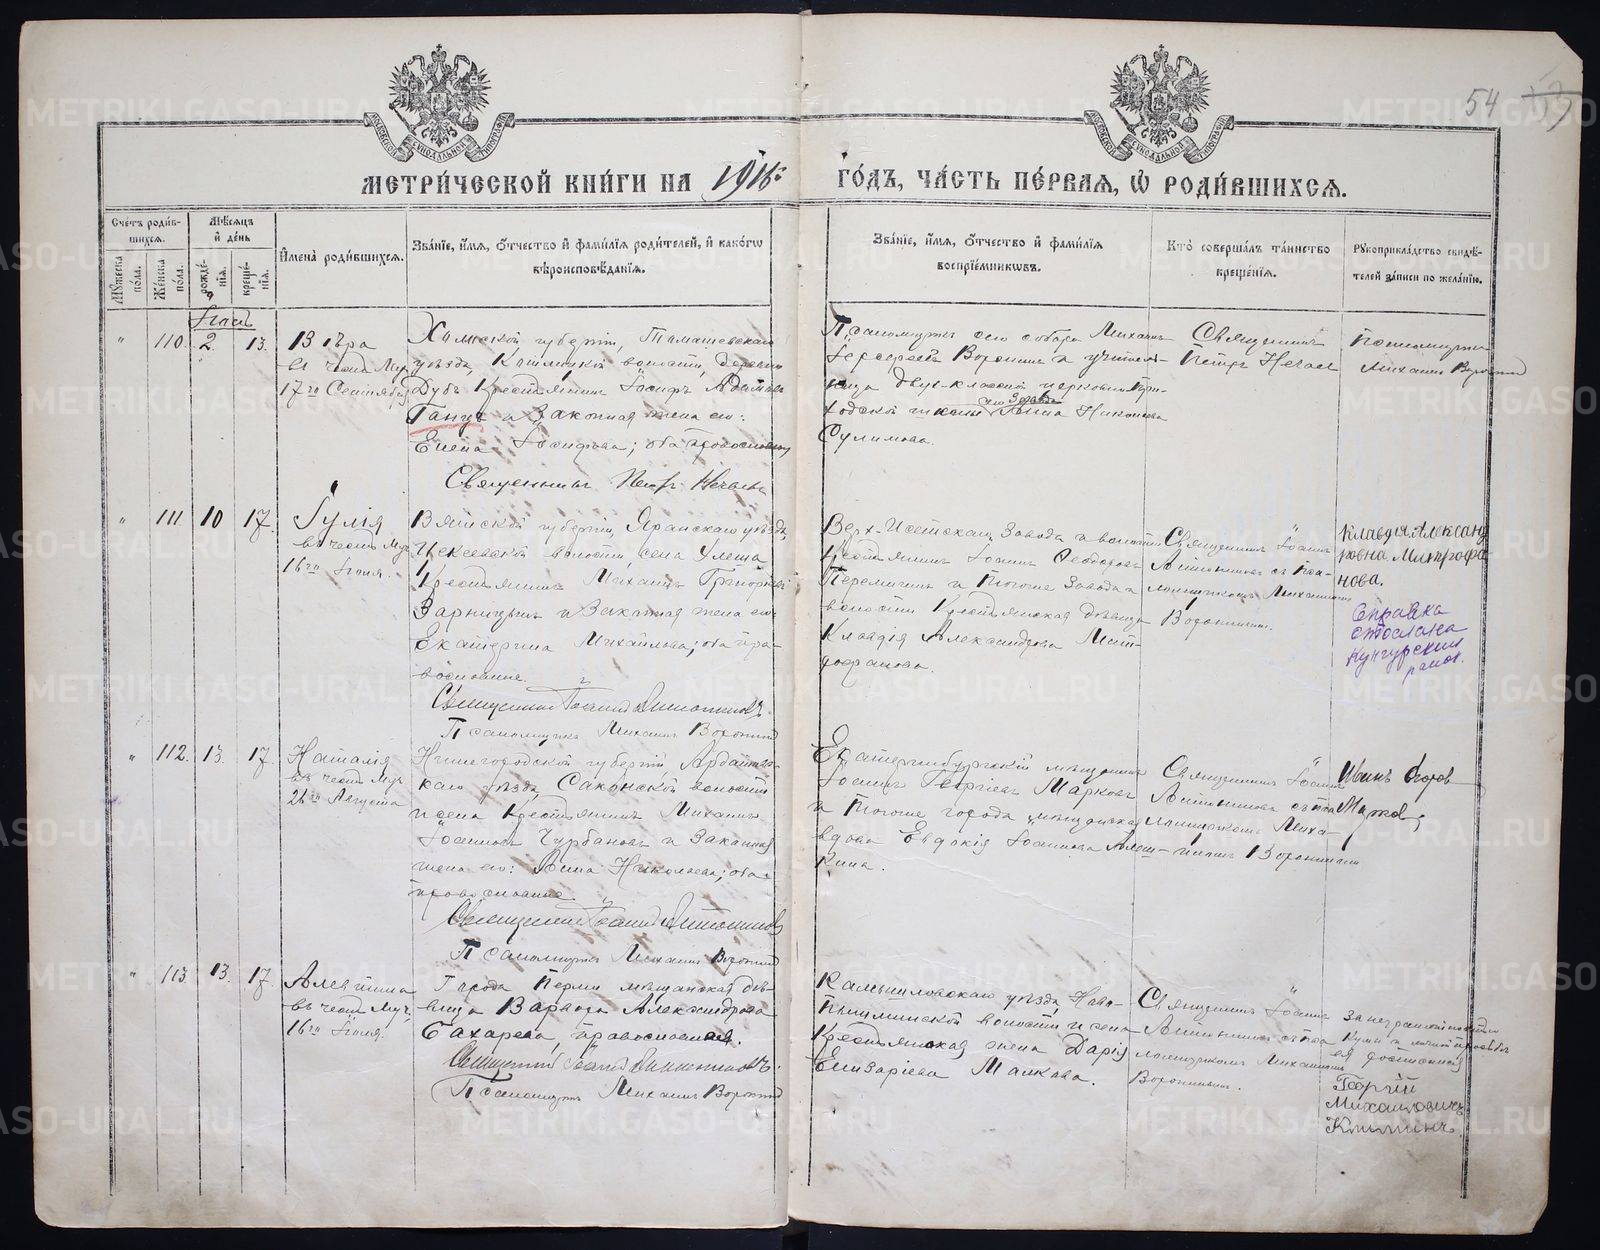 54
МЕТРИ́ЧЕСКОЙ КНИ́ГИ НА 1916й
ГО́ДЪ, ЧА́СТЬ ПЕ́РВАЯ, Ѡ РОДИ́ВШИХСЯ.
Сче́тъ роди́в-
шихся.
Мѣ́сяцъ
и де́нь
Мꙋ́жеска по́ла.
Же́нска по́ла.
рожде́-
нїя.
креще́-
нїя.
Имена̀ роди́вшихся.
Зва́нїе, и́мя, о́тчество и фами́лїя роди́телей, и како́гѡ
вѣроисповѣ́данїя.
Зва́нїе, и́мя, о́тчество и фами́лїя
воспрїе́мникѡвъ.
Кто̀ соверша́лъ та́инство
креще́нїя.
Рꙋкоприкла́дство свидѣ́-
телей за́писи по жела́нїю.
"
110.
2.
13.
Вѣра
въ честь Муч.
17го Сентября
Холмской губерніи, Томашевскаго
уѣзда, волости, деревни
Дубъ Крестьянинъ Іосифъ
и Законная жена его:
Елена Іосифова; оба православные
Священникъ Петр Нечаевъ
Псаломщикъ сего собора Михаилъ
Воронинъ и учитель-
ница двух-классной церковно-при-
ходской школы Анна Николаева
Сулимова.
Священникъ
Петръ Нечаев
Псаломщикъ
Михаилъ Воронинъ
"
111
10
17.
Іулія
въ честь Муч.
16го Іюля.
Вятской губерніи, Яранскаго уѣзда,
волости, села
Крестьянинъ Михаилъ Григорьевъ
и Законная жена его
Екатерина Михайлова; оба пра-
вославные.
Священникъ Іоаннъ
Псаломщикъ Михаилъ Воронинъ
Верх-Исетскаго Завода и волости
Крестьянинъ Іоаннъ Ѳеодоровъ
и Тогоже Завода и
волости Крестьянская дѣвица
Клавдія Александрова Мит-
рофанова.
Священникъ Іоаннъ
съ Пса-
ломщикомъ Михаиломъ
Воронинымъ.
Клавдія Александ
ровна Митрофа-
нова.
Справка
отослана
Кунгурский
район.
"
112.
13.
17.
Наталія
въ честь Муч.
26го Августа
Нижегородской губерніи, Ардатов-
скаго уѣзда, Саконской волости
и села Крестьянинъ Михаилъ
Іоанновъ Чурбановъ и Законная
жена его: Анна Николаева; оба
православные.
Священникъ Іоаннъ
Псаломщикъ Михаилъ Воронинъ
Екатеринбургскій мѣщанинъ
Іоаннъ Георгіевъ Марковъ
и Тогоже города мѣщанская
вдова Евдокія Іоаннова Алеш-
кина.
Священникъ Іоаннъ
съ Пса-
ломщикомъ Миха-
иломъ Воронинымъ
Иванъ Егоров
"
113.
13.
17.
Алевтина
въ честь Муч.
16го Іюля.
Города Перми мѣщанская дѣ-
вица Варвара Александрова
Бахарева, православная.
Священникъ Іоаннъ
Псаломщикъ Михаилъ Воронинъ
Камышловскаго уѣзда, Ново-
Пышминской волости и села
Крестьянская жена Дарія
Елизаріева Малкова.
Священникъ Іоаннъ
съ Пса-
ломщикомъ Михаиломъ
Воронинымъ.
За неграмотностью
Кумы и личной просьбѣ
ея росписался
Георгій
Михайловичъ
METRIKI.GASO-URAL.RU